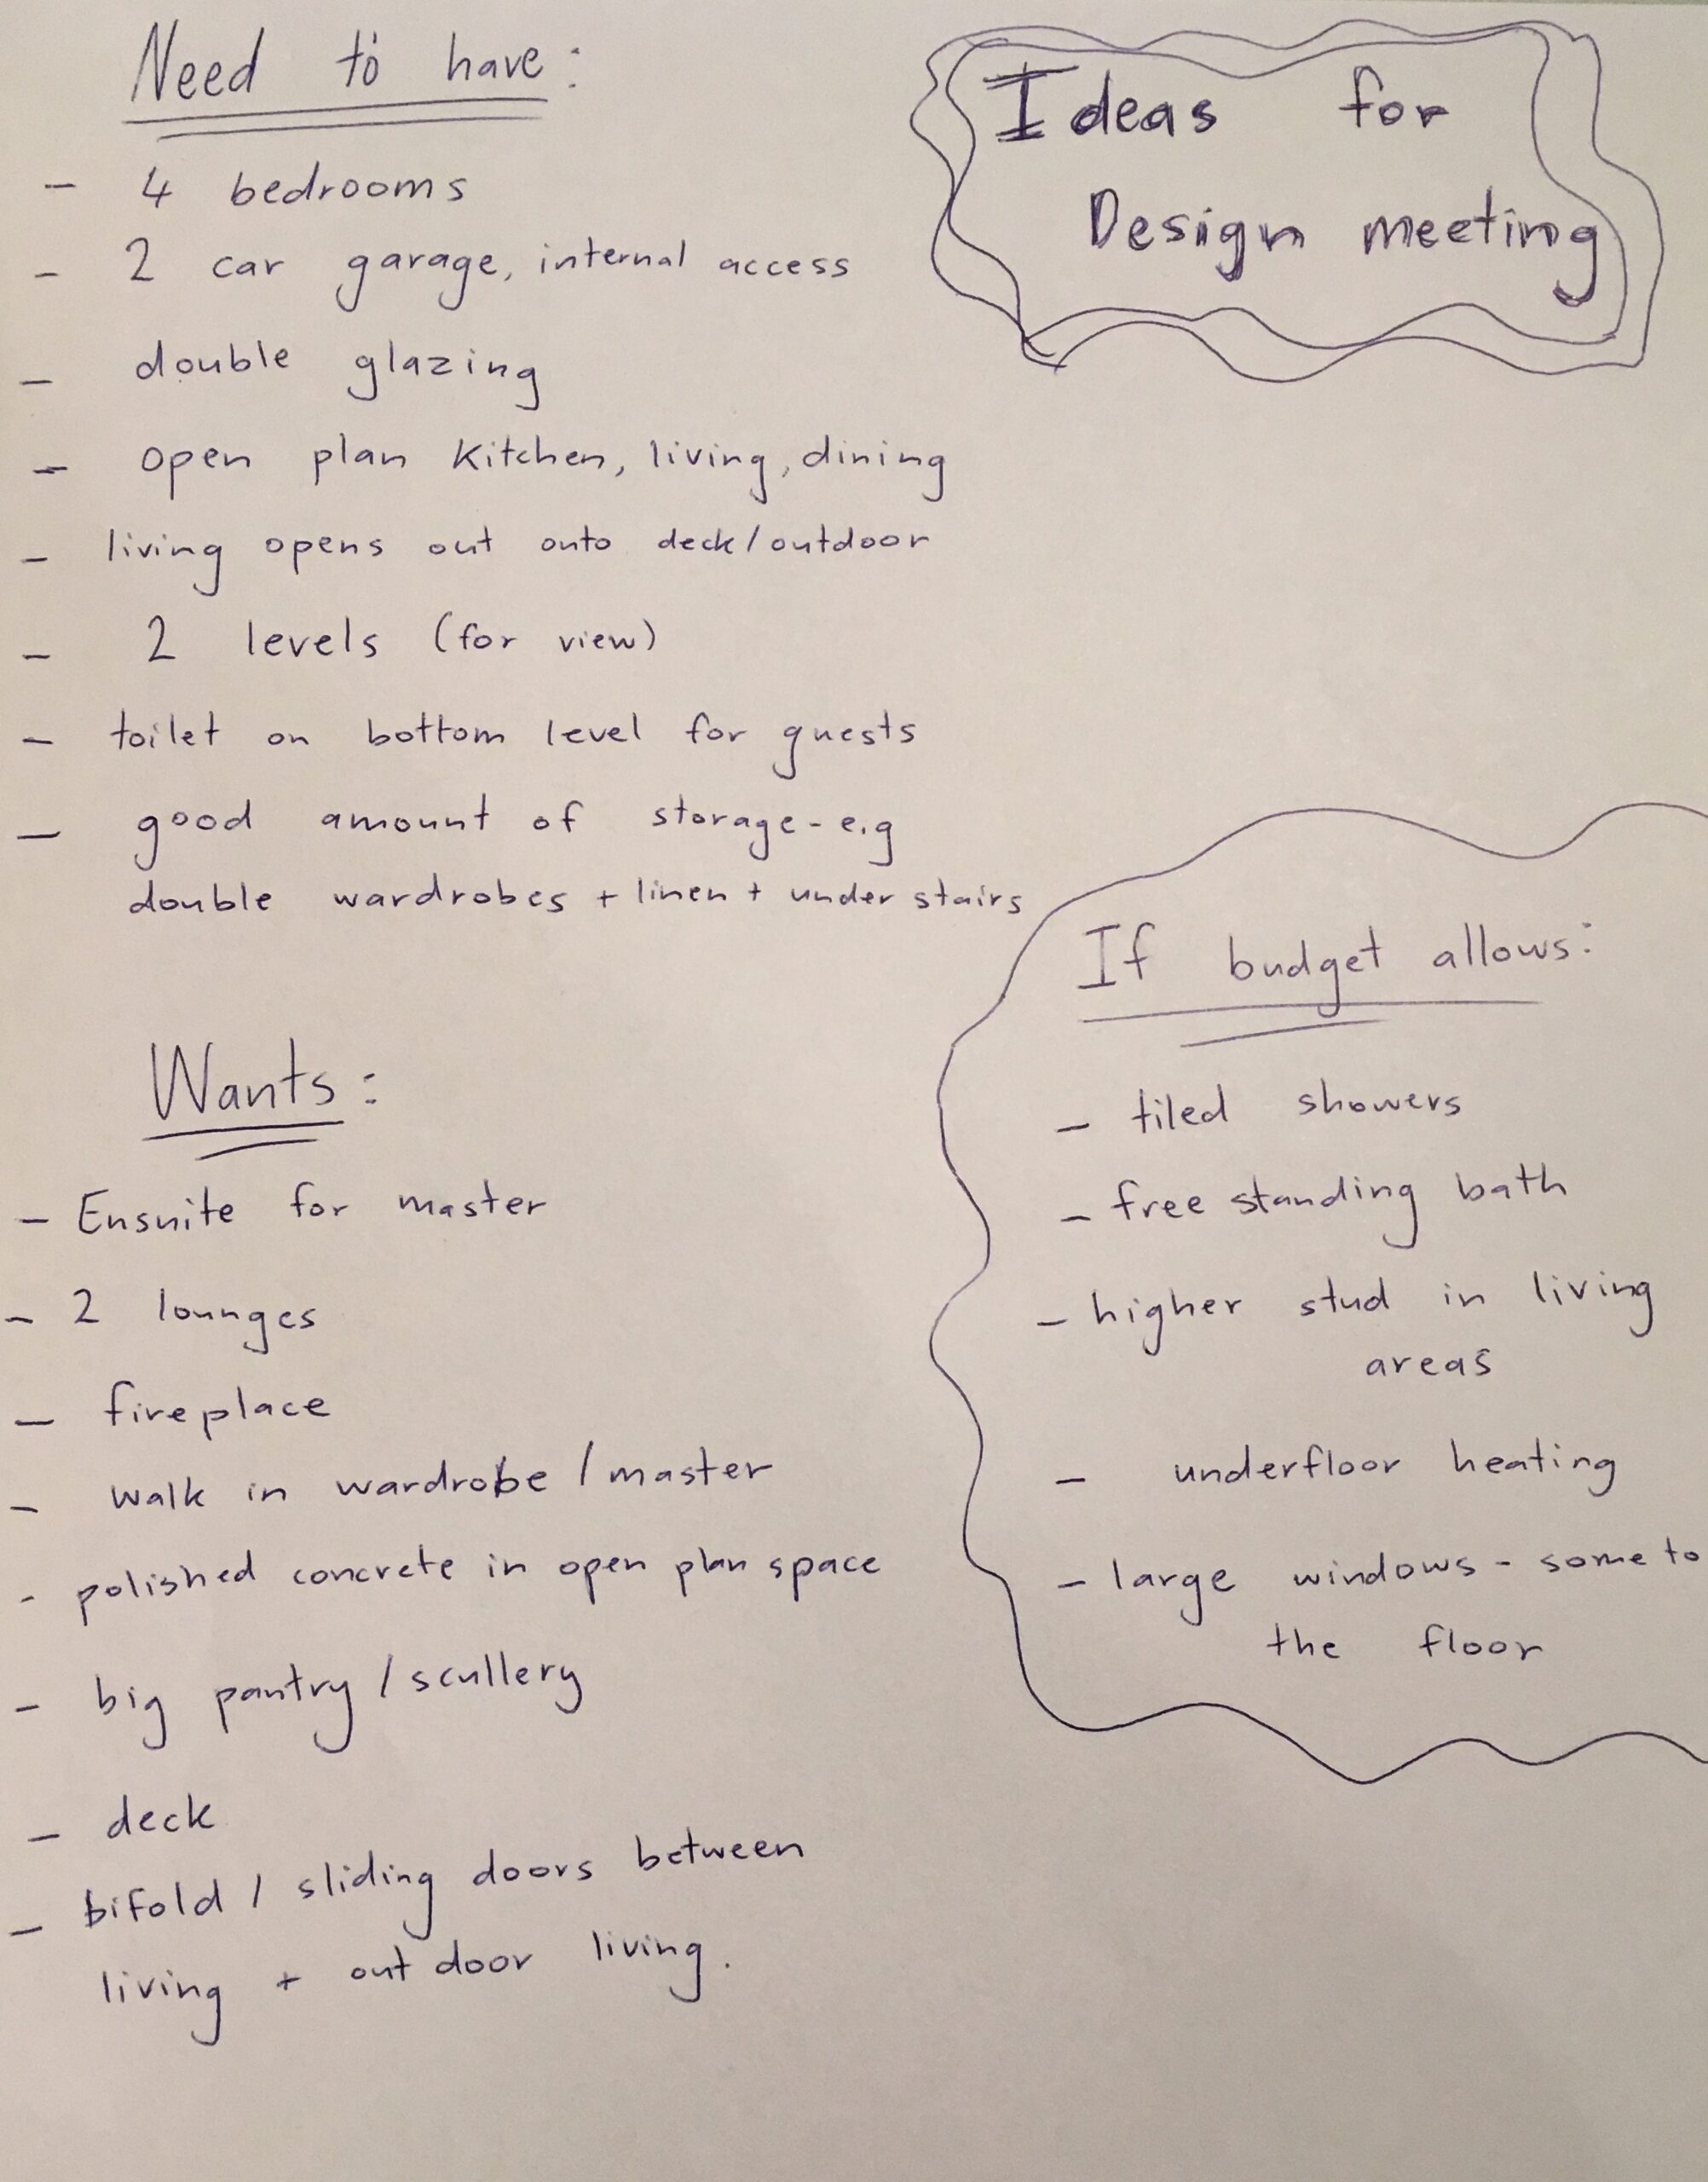 Ideas for
Design meeting
Need to have:
- 4 bedrooms
- 2 car garage, internal access
- double glazing
- open plan kitchen, living, dining
- living opens out onto deck/outdoor
- 2 levels (for view)
- toilet on bottom level for guests
- good amount of storage - e.g
double wardrobes + linen + under stairs
Wants:
- Ensuite for master
- 2 lounges
- fireplace
- walk in wardrobe / master
- polished concrete in open plan space
- big pantry / scullery
- deck
- bifold / sliding doors between
living + outdoor living.
If budget allows:
- tiled showers
- free standing bath
- higher stud in living
areas
- underfloor heating
- large windows - some to
the floor